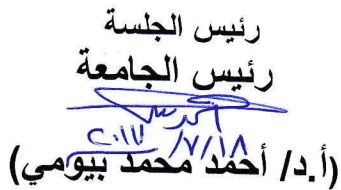 رئيس الجلسة
رئيس الجامعة
٢٠١٧/٧/١٨
(أ.د/ أحمد محمد بيومي)